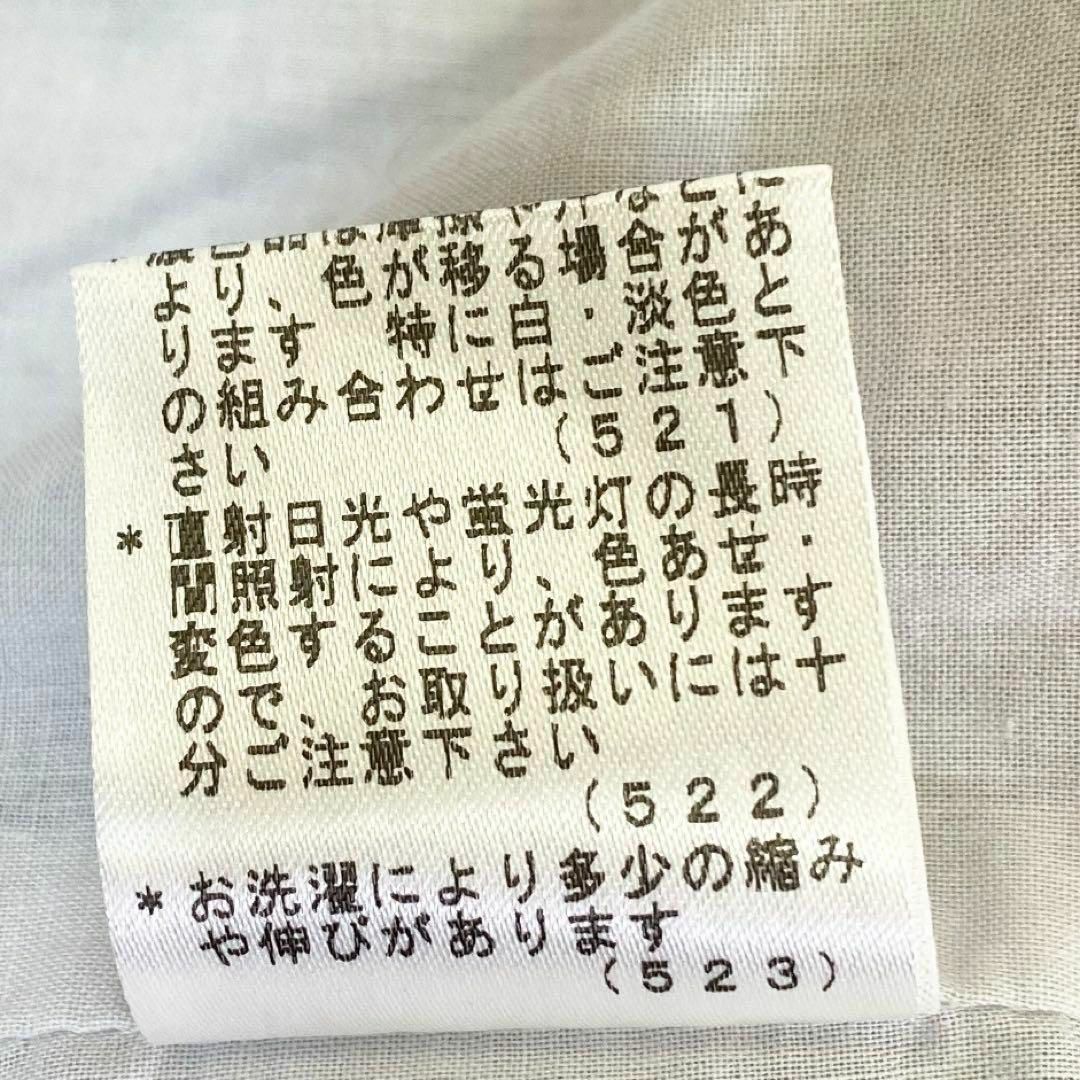 濃色品は摩擦や汗などに
より、色が移る場合があ
ります 特に白・淡色と
の組み合わせはご注意下
さい (521)
*直射日光や蛍光灯の長時
間照射により、色あせ・
変色することがあります
ので、お取り扱いには十
分ご注意下さい
(522)
*お洗濯により多少の縮み
や伸びがあります
(523)